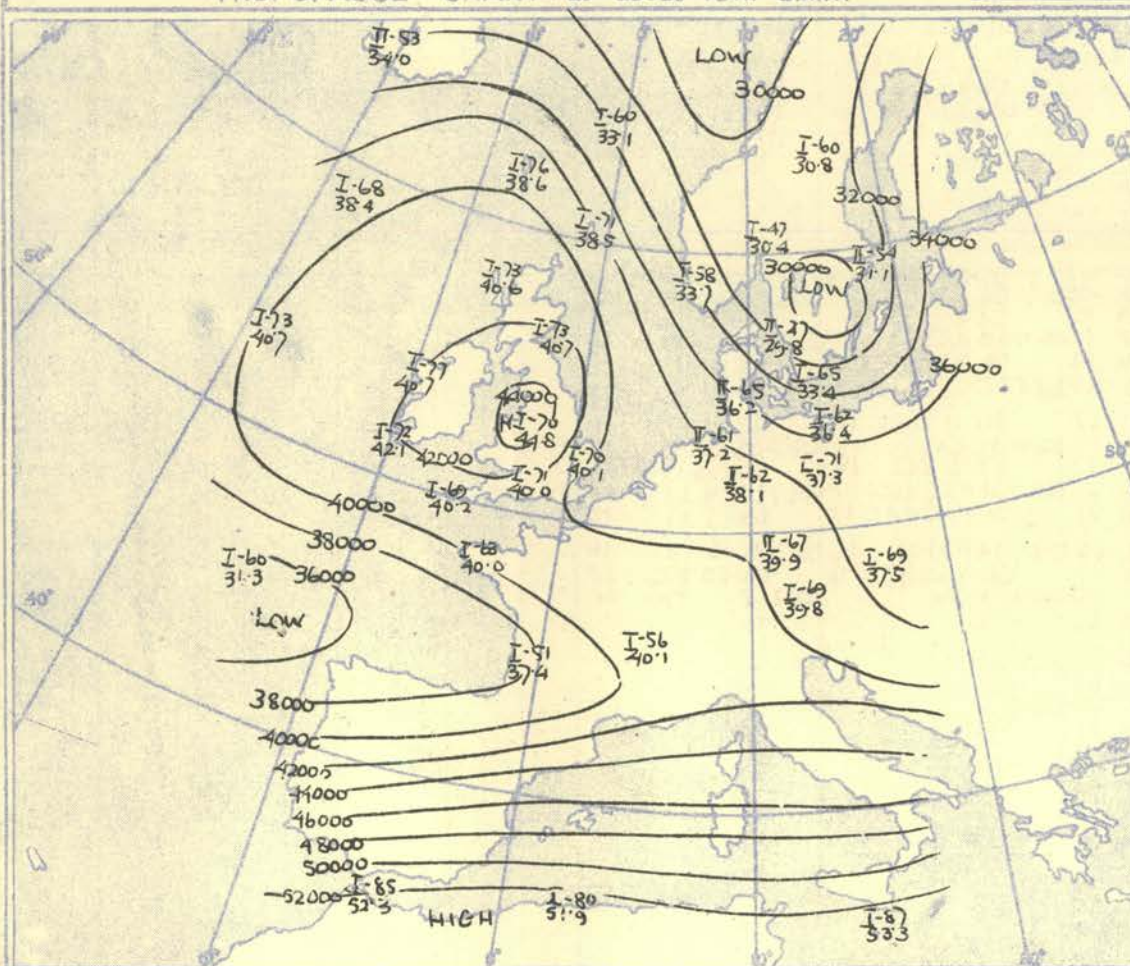 II-53
34.0
LOW
30000
I-60
33.1
I-60
30.8
I-76
38.6
I-68
38.4
32000
I-71
38.5
I-47
30.4
34000
II-54
31.1
30000
LOW
I-73
40.6
II-58
33.7
I-73
40.7
I-73
40.7
II-27
29.8
I-77
40.7
I-65
33.4
36000
II-65
36.2
44000
H I-70
44.8
I-62
36.4
I-72
42.1
II-61
37.2
42000
I-70
40.1
I-71
40.0
I-71
37.3
I-62
38.1
I-69
40.2
40000
38000
I-63
40.0
II-67
39.9
I-69
37.5
I-60
31.3
36000
I-69
39.8
LOW
I-56
40.1
I-51
37.4
38000
40000
42000
44000
46000
48000
50000
52000
I-85
52.3
I-80
51.9
HIGH
I-87
53.3
50°
40°
0°
10°
20°
30°